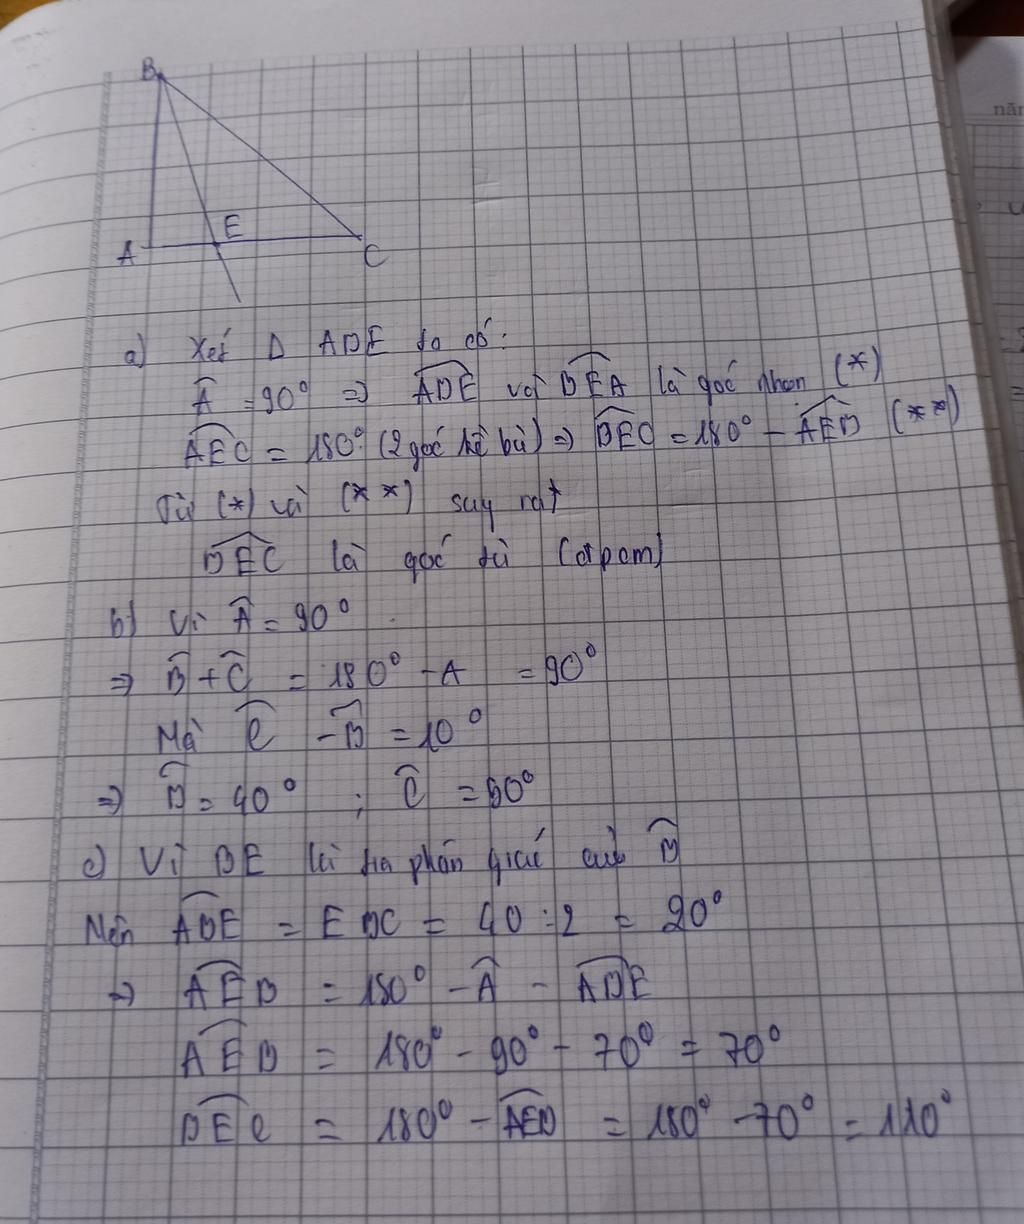 B
A
E
C
a) Xét Δ ABE ta có:
Â = 90° => ABE và BEA là góc nhọn (*)
AEC = 180° (2 góc kề bù) => BEC = 180° - AEB (**)
Từ (*) và (**) suy ra
BEC là góc tù (đpcm)
b) Vì Â = 90°
=> B + C = 180° - A = 90°
Mà C - B = 10°
=> B = 40° ; C = 50°
c) Vì BE là tia phân giác của B
Nên ABE = EBC = 40 : 2 = 20°
=> AEB = 180° - Â - ABE
AEB = 180° - 90° - 70° = 70°
BEC = 180° - AEB = 180° - 70° = 110°
năm